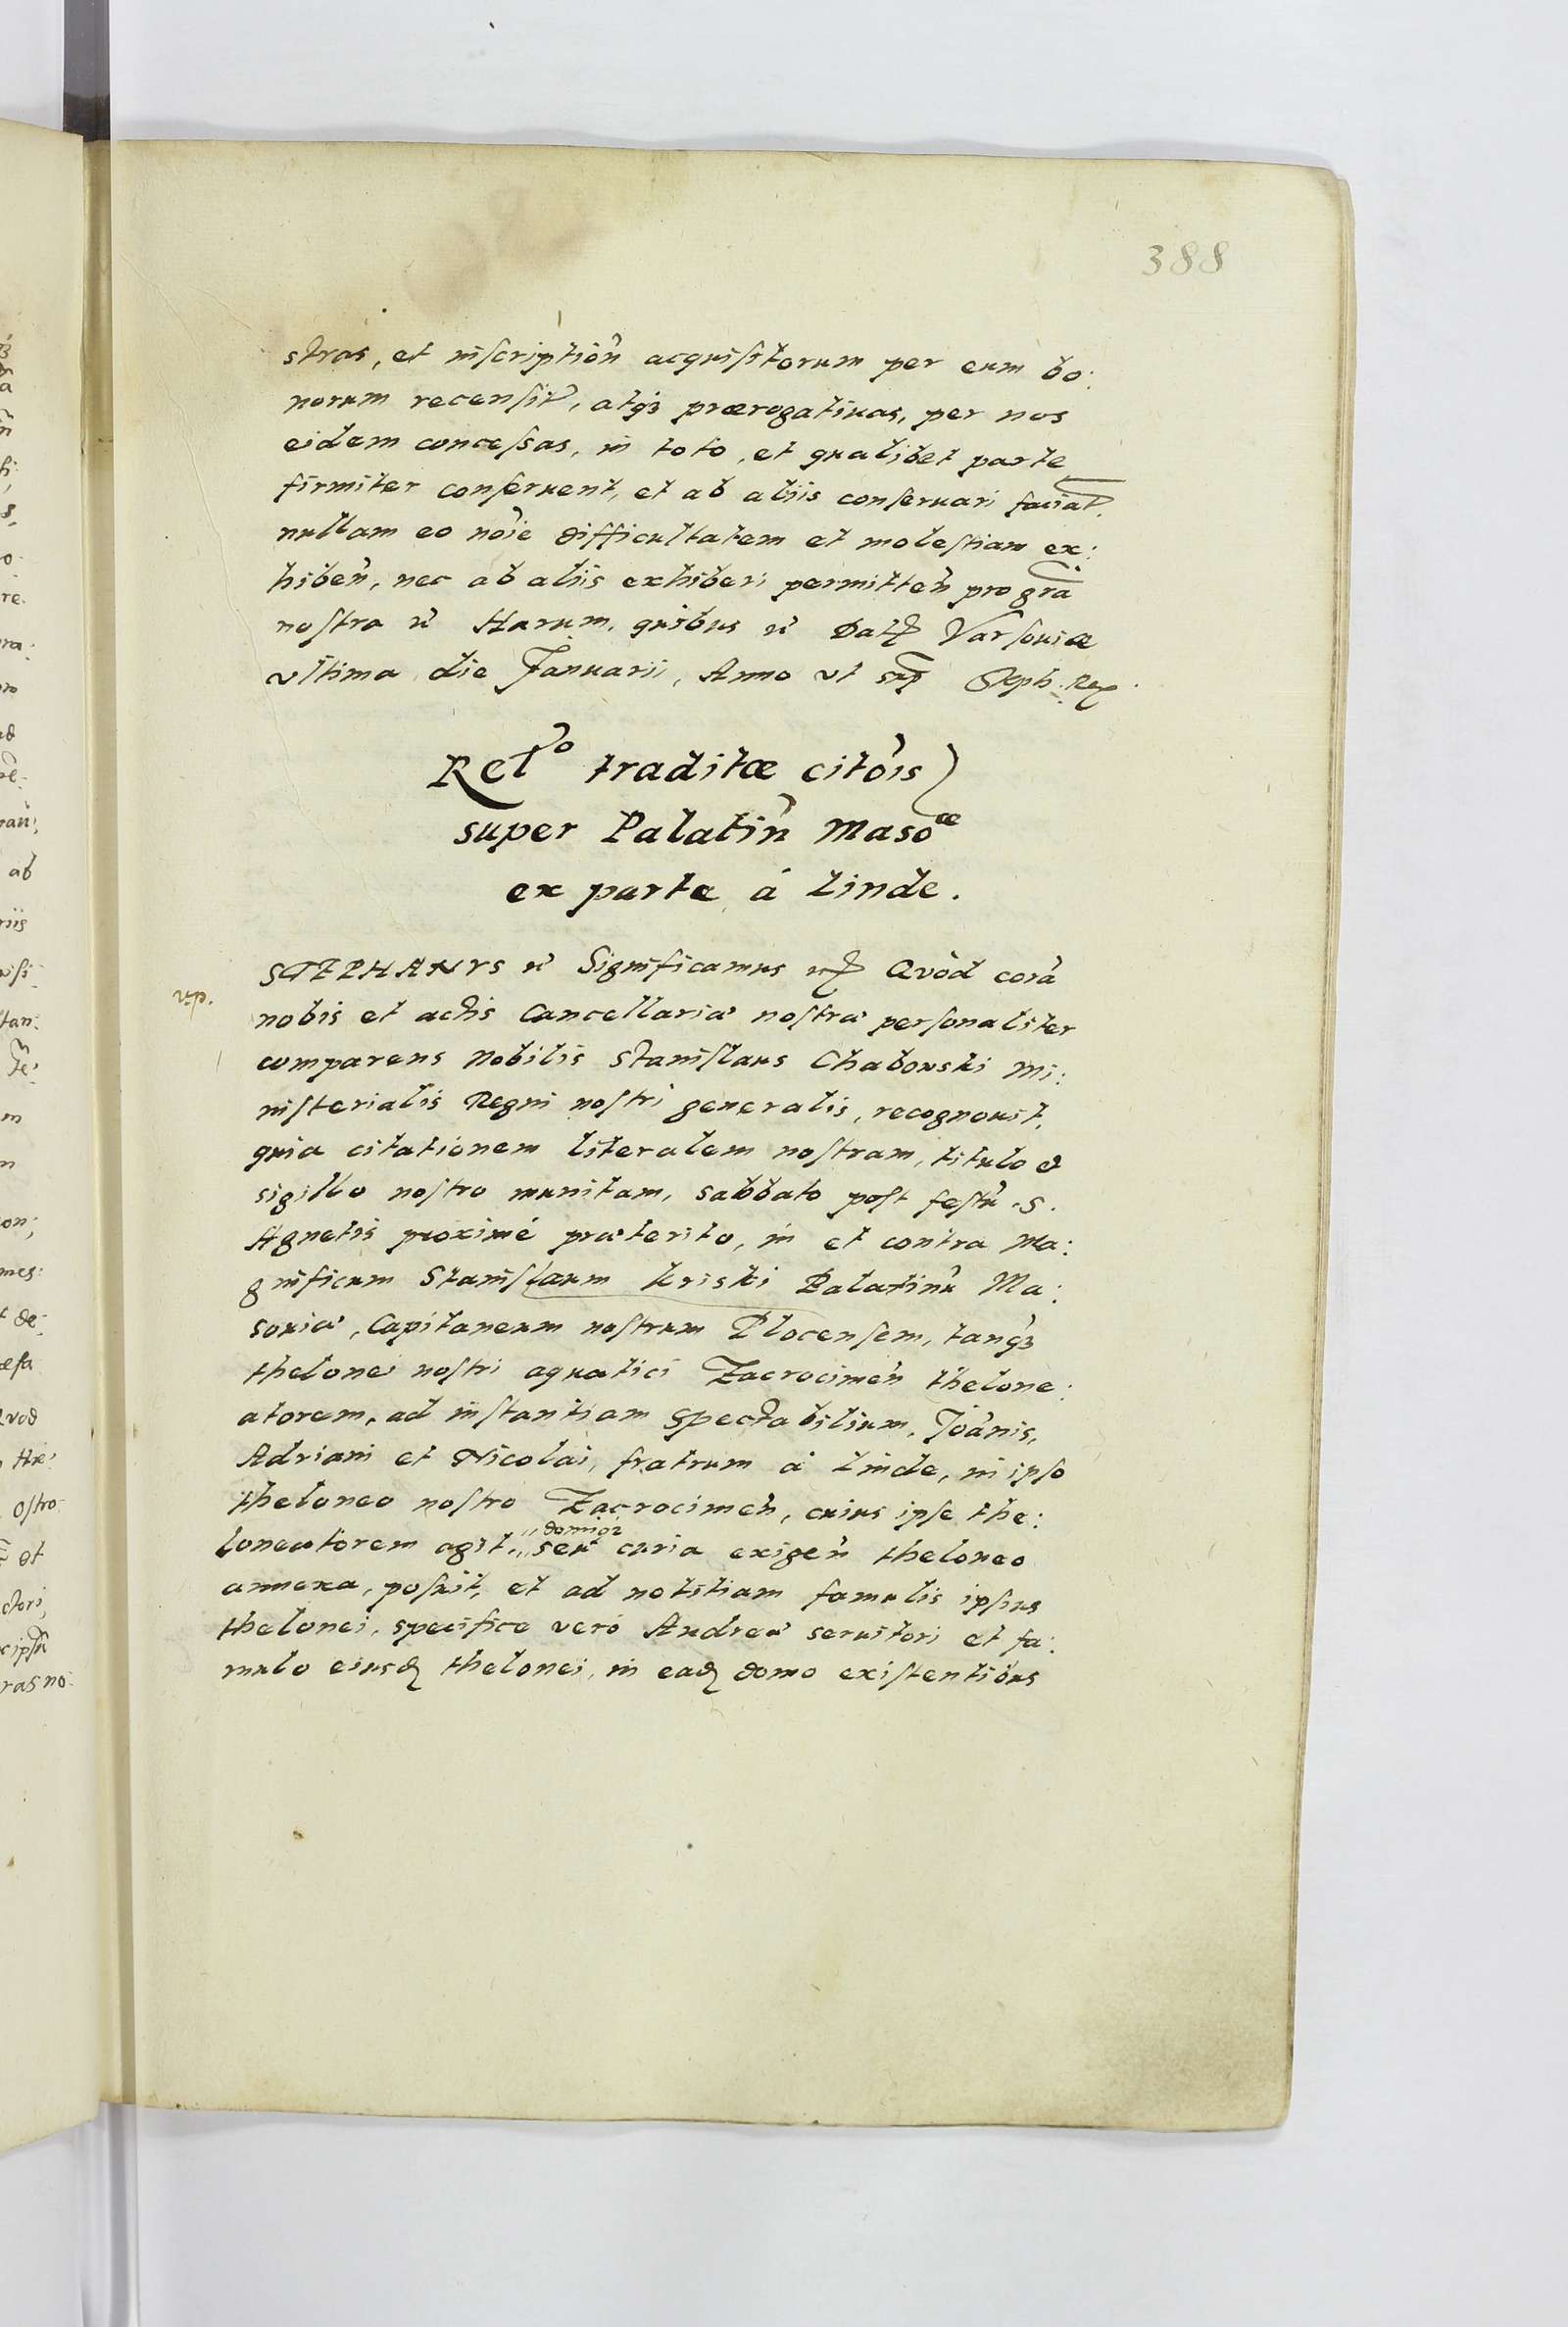 388
stras, et inscriptioñ acquisitorum per eum bo:
norum recensit, atqꝫ prærogatiuas, per nos
eidem concessas, in toto, et qualibet parte
firmiter conseruent, et ab aliis conseruari faciat.
nullam eo noie difficultatem et molestiam ex:
hibeñ, nec ab aliis exhiberi permitteñ pro gra
nostra Harum, quibus Dat Varsouiæ
vltima die Januarii, Anno vt sup Steph: Rex
Relo traditæ citois
super Palatiñ Masoæ
ex parte à Linde.
STEPHANVS Significamus Qvod corā
nobis et actis Cancellariæ nostræ personaliter
comparens Nobilis Stanislaus Chabouski mi:
nisterialis Regni nostri generalis, recognouit,
quia citationem literalem nostram, titulo et
sigillo nostro munitam, sabbato post festū .S.
Agnetis proximè præterito, in et contra Ma:
gnificum Stanislaum Kriski Palatinū Ma:
souiæ, Capitaneum nostrum Plocensem, tanqꝫ
thelonei nostri aquatici Zacrocimeñ thelone:
atorem, ad instantiam Spectabilium, Joanis,
Adriani et Nicolai, fratrum à Linde, in ipso
theloneo nostro Zacrocimeñ, cuius ipse the:
loneatorem agit, seu curia exigeñ theloneo
annexa, posuit, et ad notitiam famulis ipsius
thelonei, specifice verò Andreæ seruitori et fa:
mulo eiusd thelonei, in ead domo existentibus